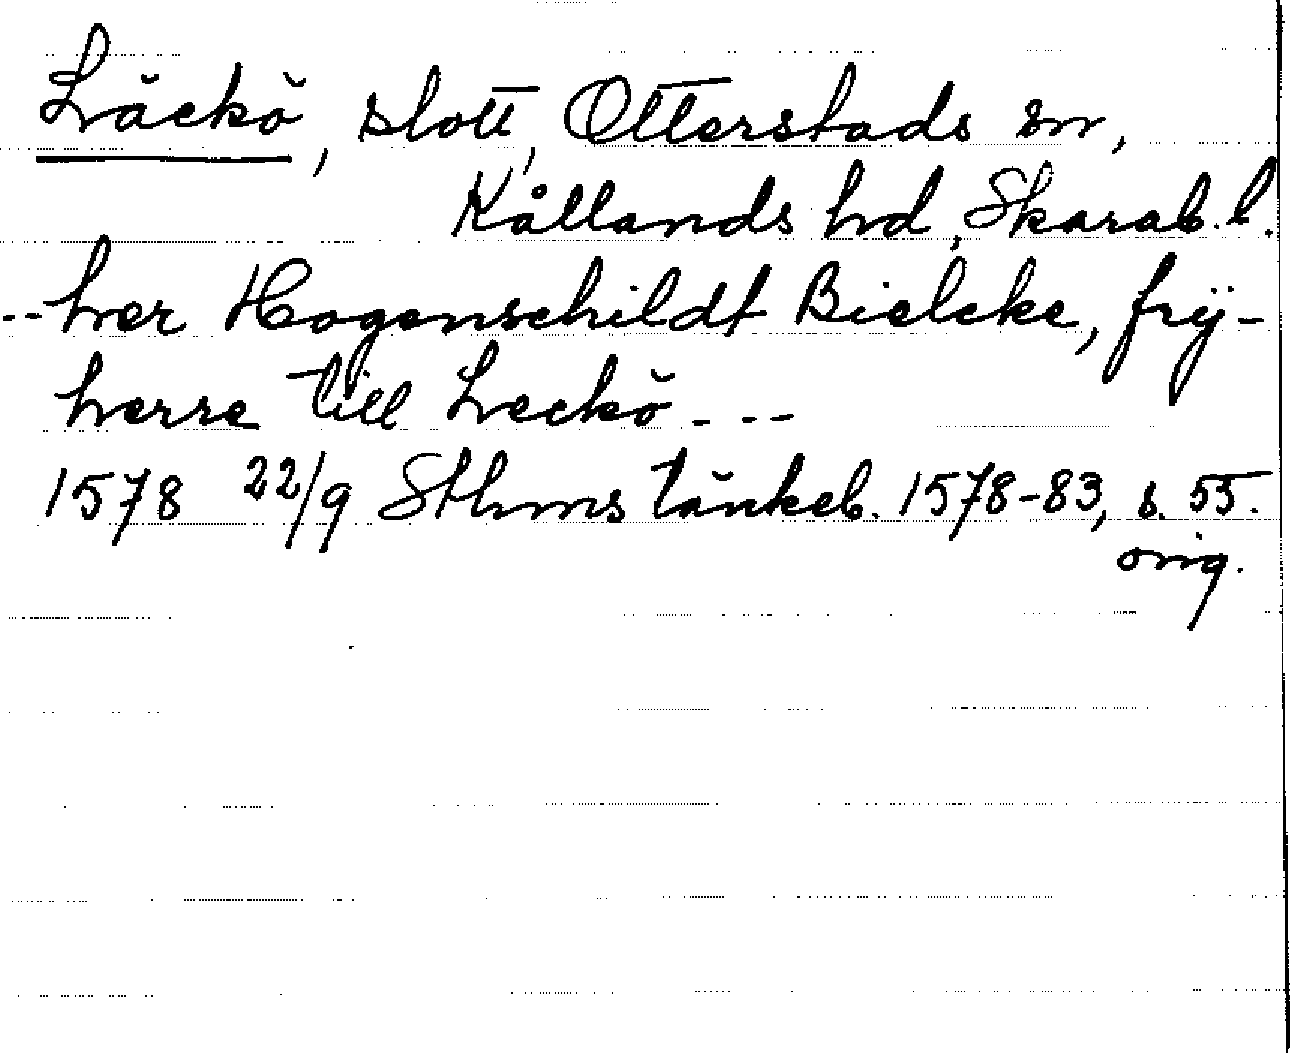 Läckö, slott, Otterstads sn,
Kållands hd, Skarab. l.
--her Hogenschildt Bielcke, frij-
herre till Leckö---
1578 22/9 Sthms tänkeb. 1578-83, s. 55.
orig.